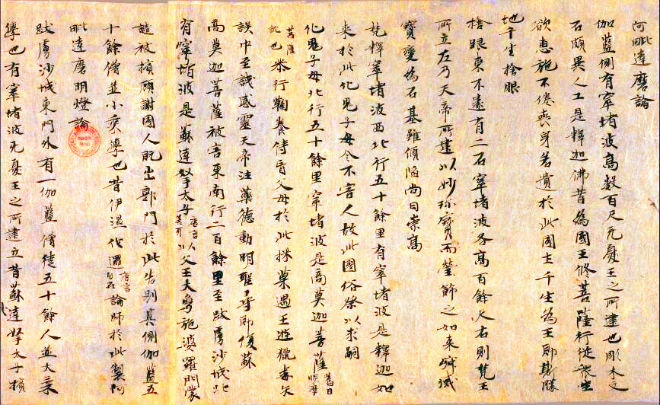 阿毗達磨論
伽藍側有窣堵波高數百尺无憂王之所建也彫木文
石頗異人工是釋迦佛昔為國王修菩薩行從衆生
欲惠施不倦喪身若遺於此國土千生為王即斯勝
地千生捨眼
捨眼東不遠有二石窣堵波各高百餘尺右則梵王
所立左乃天帝所建以妙珍寶而瑩飾之如來寂滅
寶變為石基雖傾陷尚曰崇高
梵釋窣堵波西北行五十餘里有窣堵波是釋迦如
來於此化鬼子母令不害人故此國俗祭以求嗣
化鬼子母北行五十餘里窣堵波是商莫迦菩薩舊曰睒摩
菩薩訛也恭行鞠養侍盲父母於此採菓遇王遊獵毒矢
誤中至誠感靈天帝注藥德動明聖尋即復蘇
商莫迦菩薩被害東南行二百餘里至跋虜沙城北
有窣堵波是蘇達拏太子唐言以父王大象施婆羅門蒙
譴被擯顧謝國人既出郭門於此告別其側伽藍五
十餘僧並小乘學也昔伊濕伐邏唐言自在論師於此製阿
毗達磨明燈論
跋虜沙城東門外有一伽藍僧徒五十餘人並大乘
學也有窣堵波无憂王之所建立昔蘇達拏太子擯